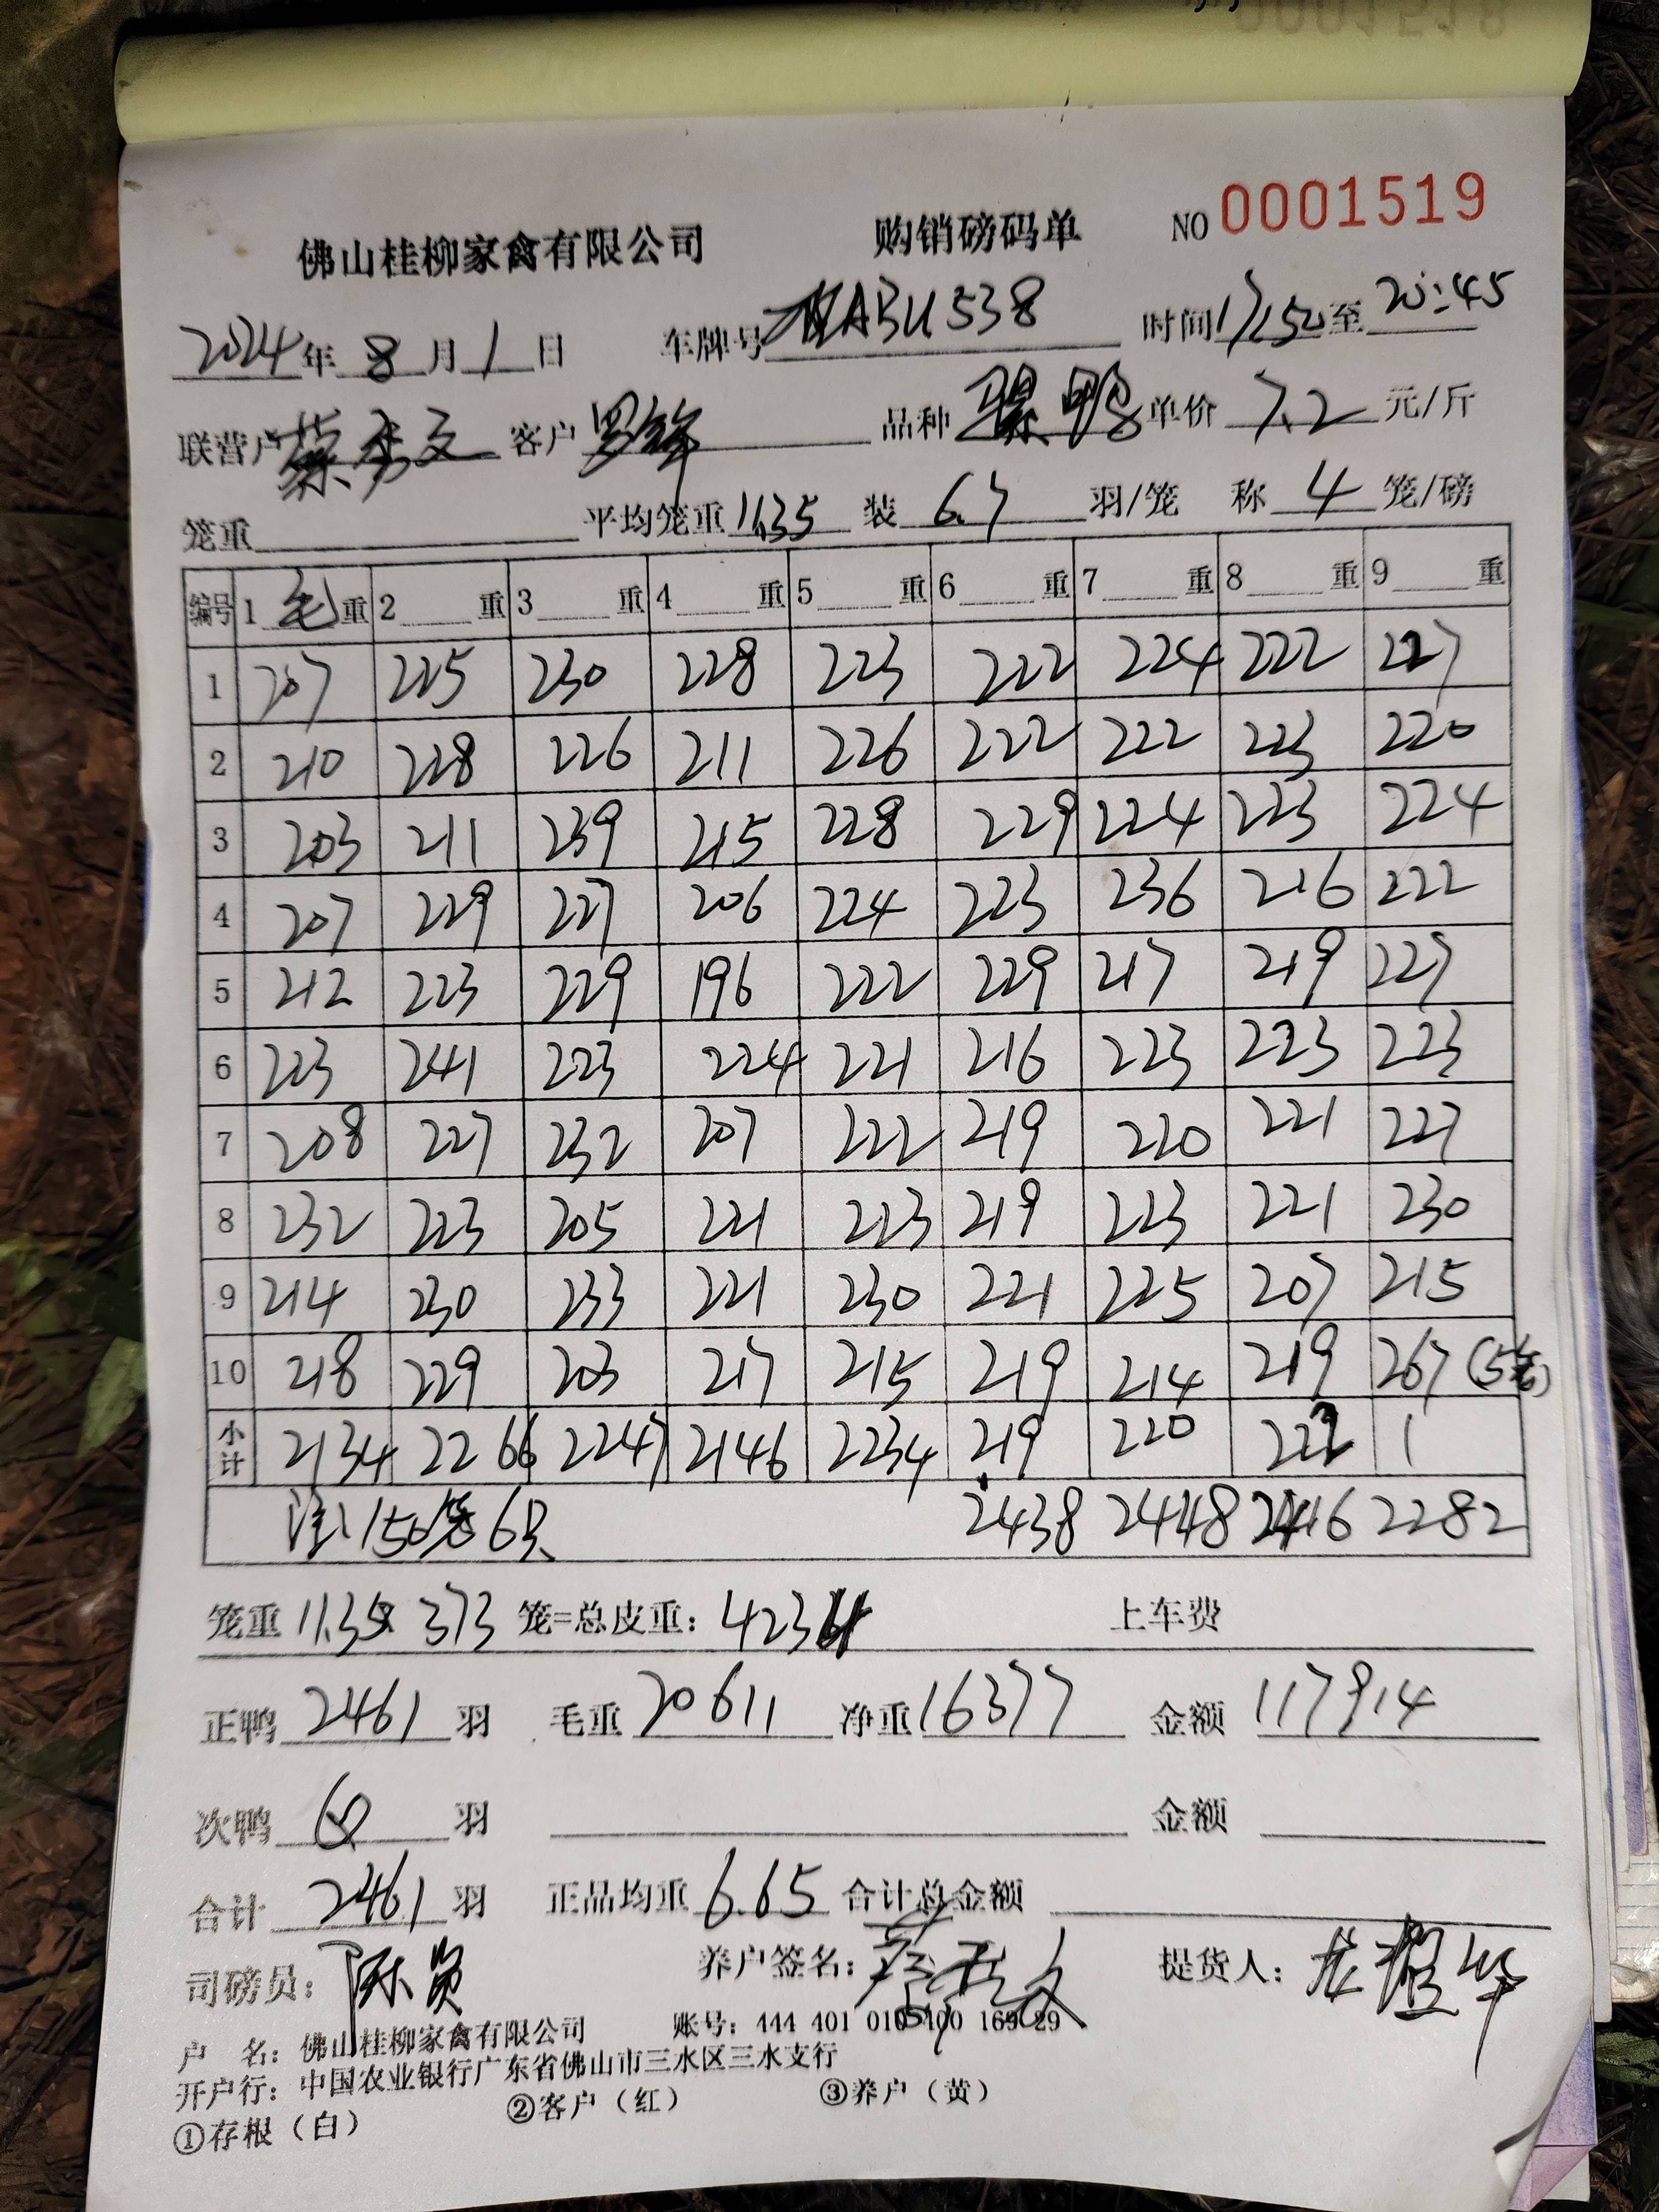 佛山桂柳家禽有限公司 购销磅码单 NO 0001519
2024年8月1日 车牌号ABU538 时间17:50至20:45
联营户 蔡秀文 客户 罗锋 品种 鸭 单价 7.2 元/斤
笼重 平均笼重 11.35 装 6.7 羽/笼 称 4 笼/磅
编号 1 毛 重 2 重 3 重 4 重 5 重 6 重 7 重 8 重 9 重
1 207 225 230 228 223 222 224 222 227
2 210 228 226 211 226 222 222 223 220
3 203 211 239 215 228 229 224 223 224
4 207 229 227 206 224 223 236 216 222
5 212 223 229 196 222 229 217 219 227
6 223 241 223 224 221 216 223 223 223
7 208 227 232 207 222 219 220 221 227
8 232 223 205 221 223 219 223 221 230
9 214 230 233 221 230 221 225 207 215
10 218 229 203 217 215 219 214 219 267 (5笼)
小计 2134 2266 2247 2146 2234 219 220 222 1
注:150笼6只 2438 2448 2416 2282
笼重 11.35× 373 笼=总皮重: 4234 上车费
正鸭 2461 羽 毛重 20611 净重 16377 金额 117914
次鸭 羽 金额
合计 2461 羽 正品均重 6.65 合计总金额
司磅员: 陈贤 养户签名: 蔡秀文 提货人: 龙耀华
户 名: 佛山桂柳家禽有限公司 账号: 444 401 010 400 169 29
开户行: 中国农业银行广东省佛山市三水区三水支行
①存根(白) ②客户(红) ③养户(黄)